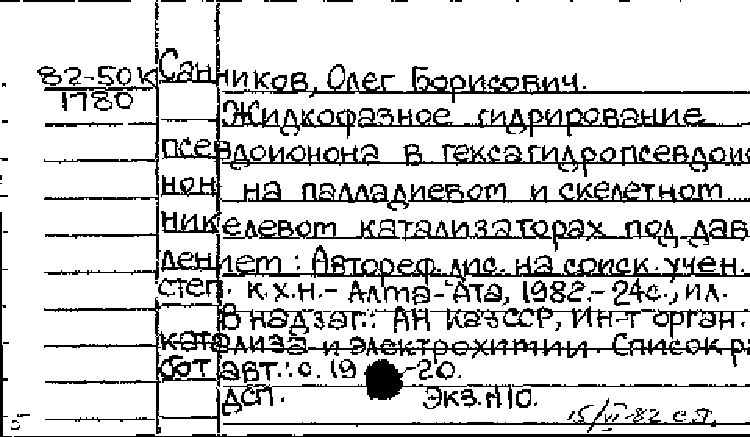 82-50к
1780
Санников, Олег Борисович.
Жидкофазное гидрирование
псевдоионона в гексагидропсевдоио
нон на палладиевом и скелетном
никелевом катализаторах под дав
лением : Автореф. дис. на соиск. учен.
степ. к.х.н. - Алма-Ата, 1982. - 24с., ил.
В надзаг.: АН КазССР, Ин-т орган.
катализа и электрохимии. Список ра
бот авт.: с. 19 -20.
ДСП. Экз. №10.
15/VI-82